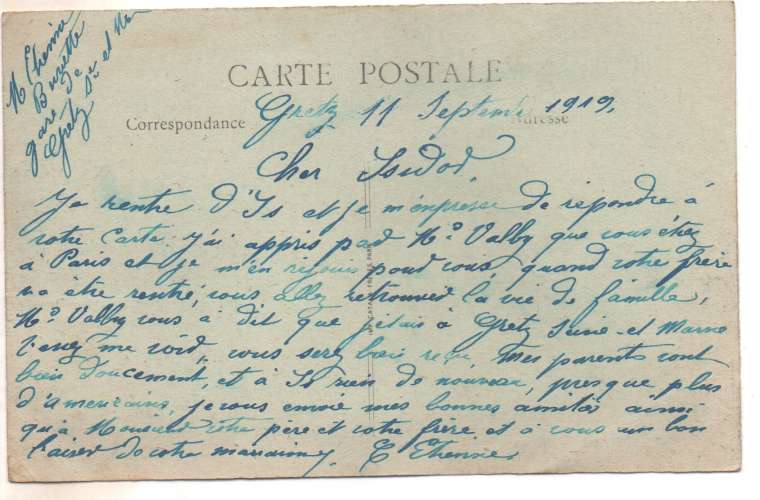 M Etienne
Buvette
gare de
Gretz Sne et Mne
CARTE POSTALE
Correspondance
Adresse
Gretz 11 Septembre 1919.
Cher Isidor,
Je rentre d'Is et je m'empresse de répondre à
votre carte. j'ai appris par Me Valby que vous étiez
à Paris et je m'en rejouis pour vous, quand votre frère
va être rentré, vous allez retrouver la vie de famille,
Me Valby vous à dit que j'étais à Gretz Seine-et Marne
venez me voir, vous serez bien reçu, mes parents vont
bien doucement, et à Is rien de nouveau, presque plus
d'américains, je vous envoie mes bonnes amitiés ainsi
qu'à Monsieur votre père et votre frère et à vous un bon
baiser de votre marraine, E Etienne